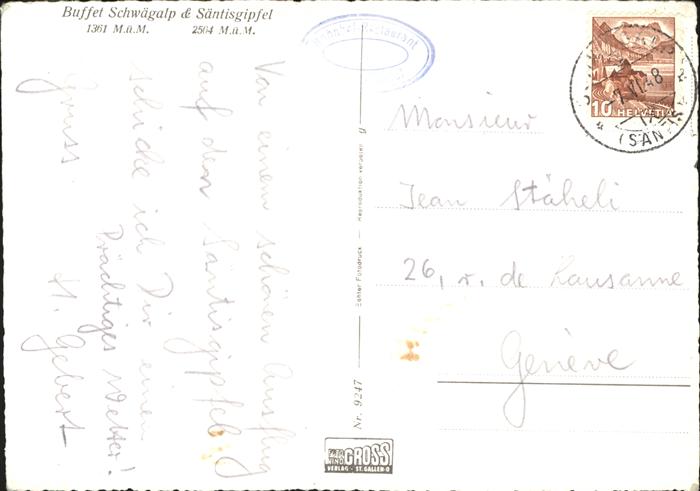 Buffet Schwägalp & Säntisgipfel
1361 M.ü.M. 2504 M.ü.M.
Von einem schönen Ausflug
auf den Säntisgipfel
schicke ich Dir einen
Gruss.
Prächtiges Wetter!
H. Gebert
Restaurant
HELVETIA
10
(SÄN
Monsieur
Jean Stäheli
26, r. de Lausanne
Genève
Echter Fotodruck — Reproduktion verboten
Nr. 9247
FOTO
GROSS
VERLAG - ST. GALLEN-O